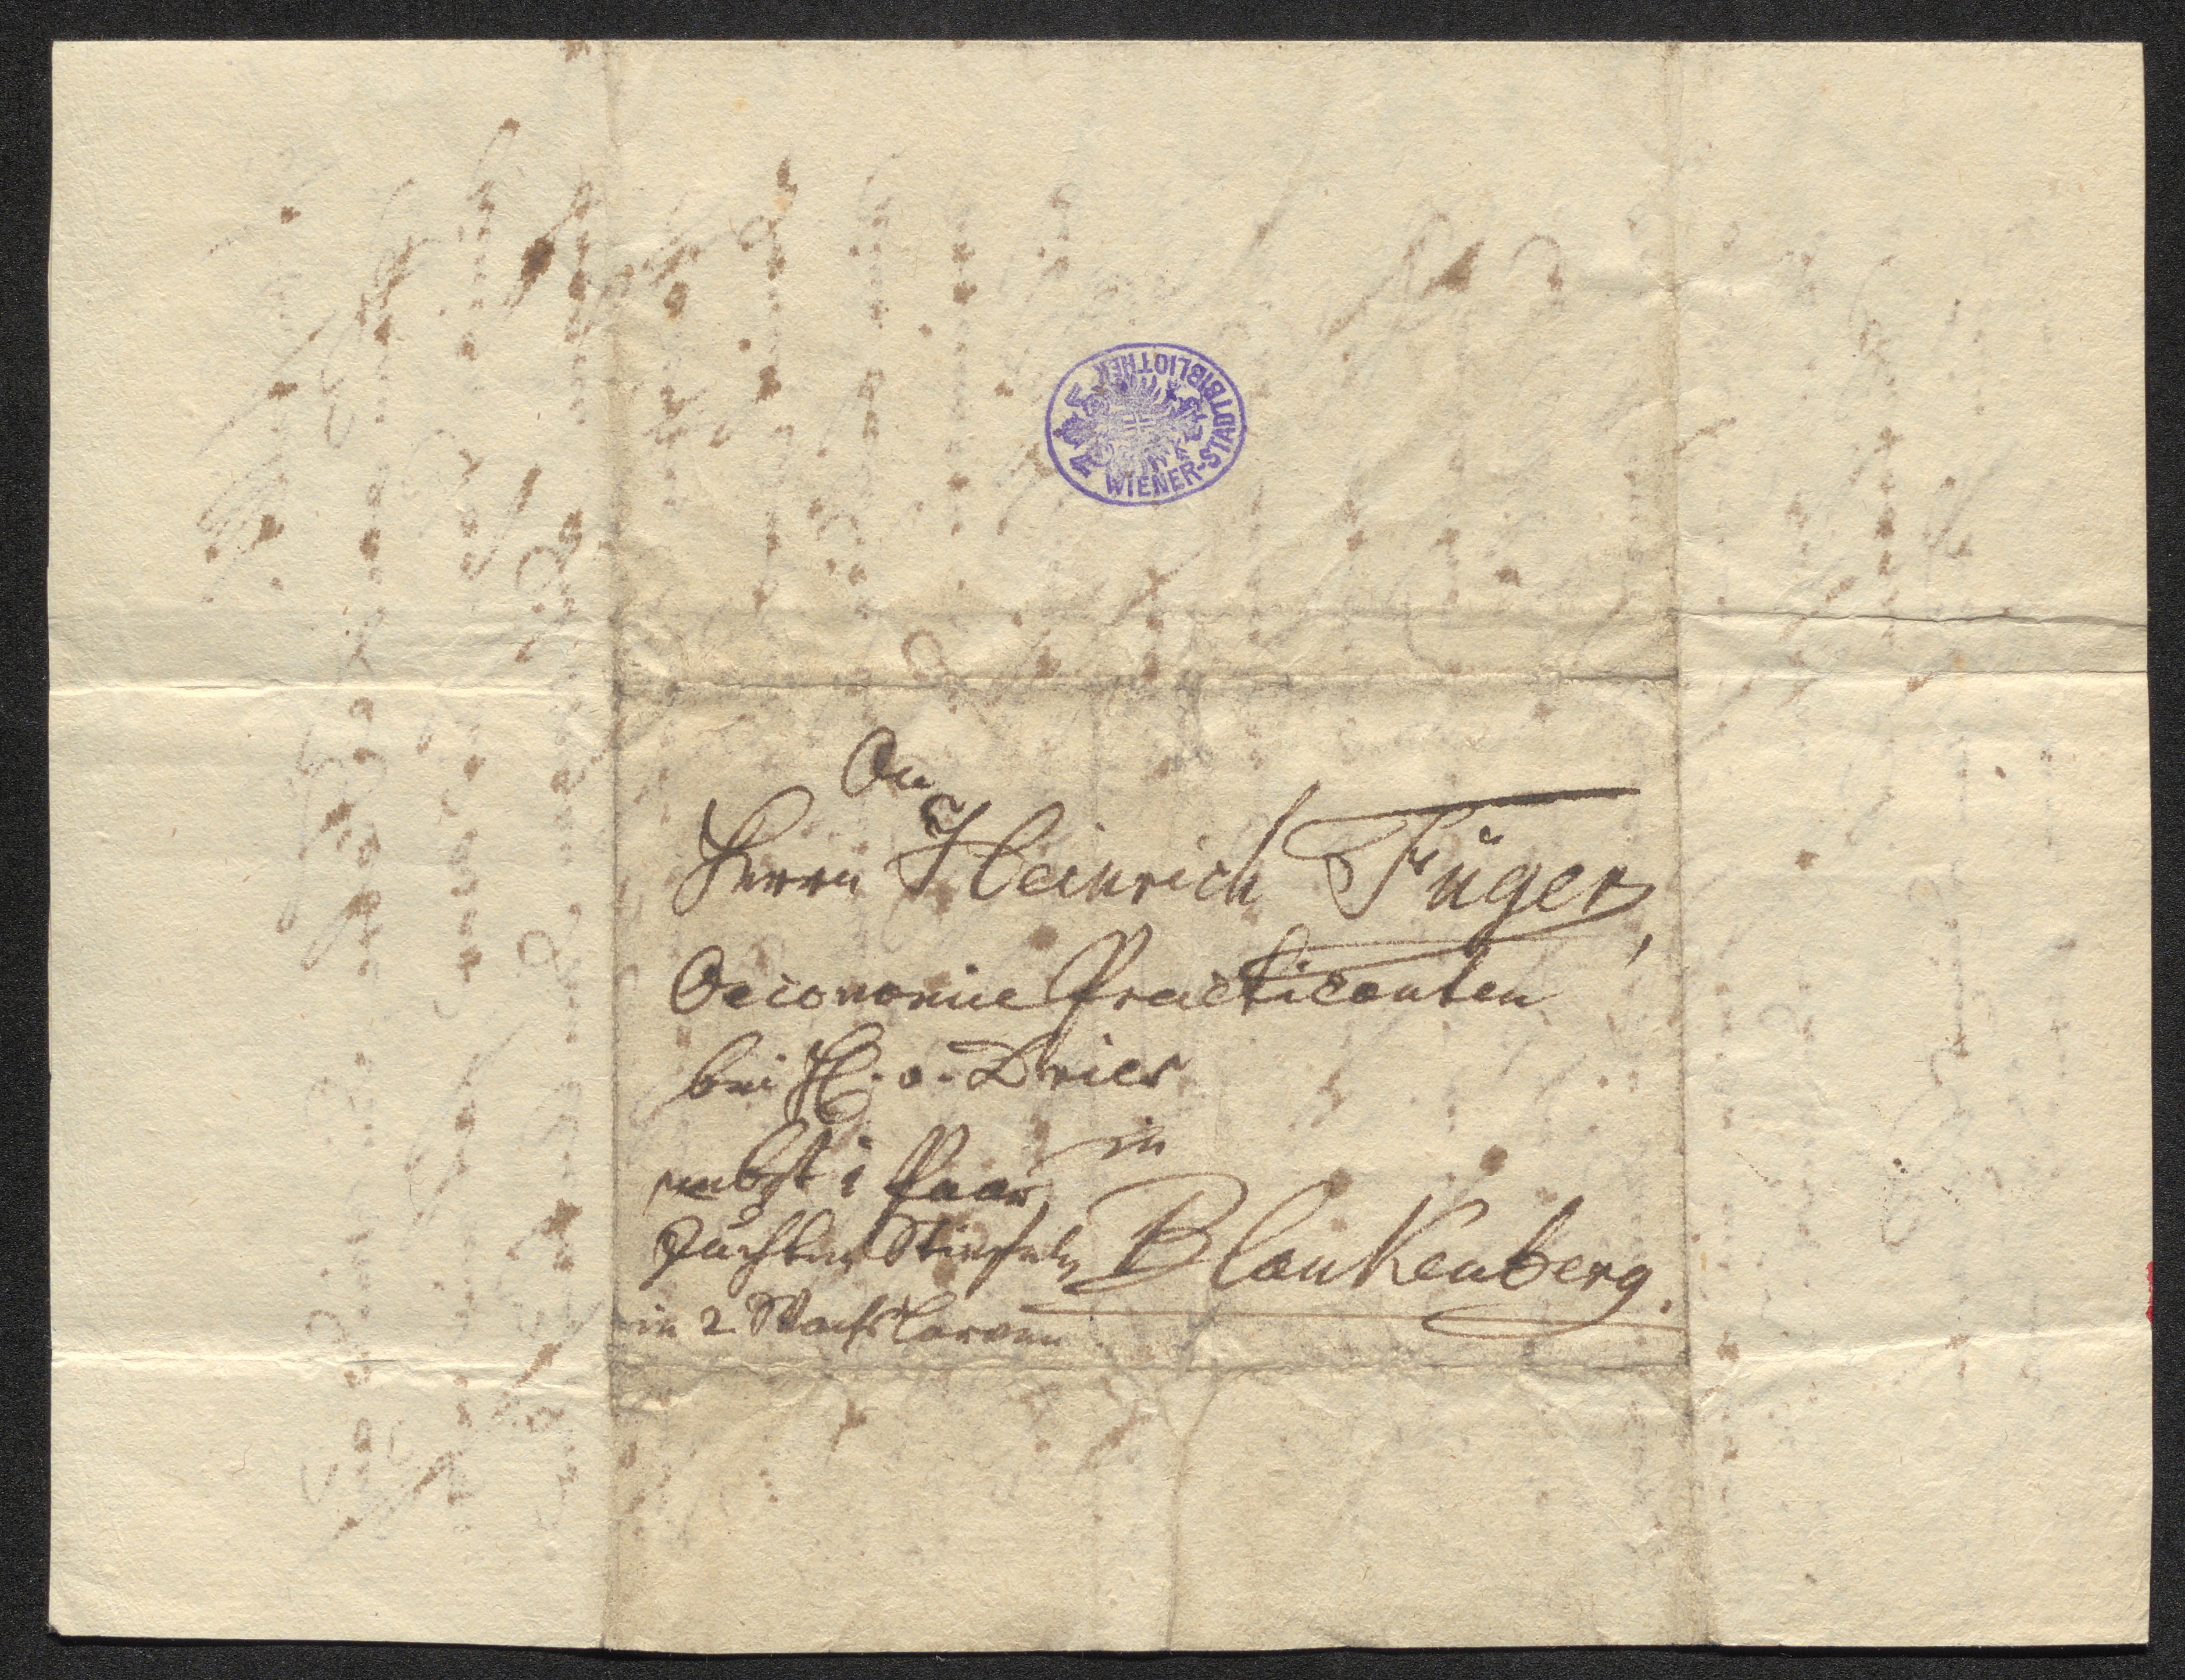 WIENER-STADTBIBLIOTHEK
An
Herrn Heinrich Füger,
Oeconomie Practicanten
bei H. v. Dries
in
nebst 1 Paar
Juchten Stiefeln
Blankenberg.
in 2 Wachs